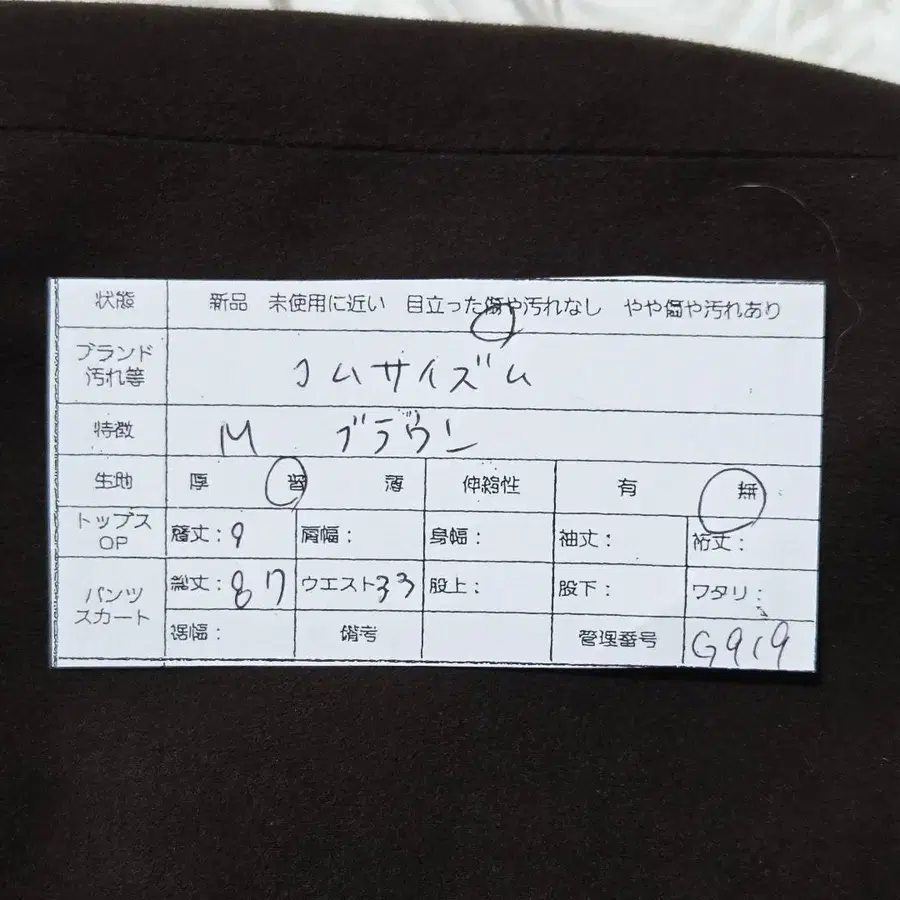 状態 新品 未使用に近い 目立った傷や汚れなし やや傷や汚れあり
ブランド
汚れ等 コムサイズム
特徴 M ブラウン
生地 厚 普 薄 伸縮性 有 無
トップス
OP 着丈：9 肩幅： 身幅： 袖丈： 裄丈：
パンツ
スカート 総丈：87 ウエスト33 股上： 股下： ワタリ：
裾幅： 備考 管理番号 G919